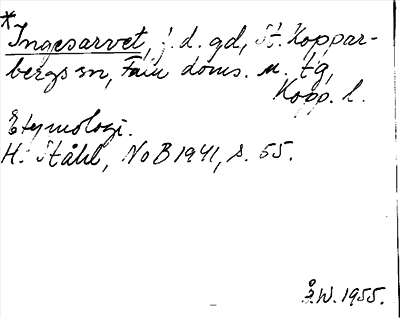 *
Ingesarvet, f.d. gd, St. Koppar-
bergs sn, Falu doms. n. tg,
Kopp. l.
Etymologi.
H. Ståhl, NoB 1941, s. 55.
Å.W. 1955.